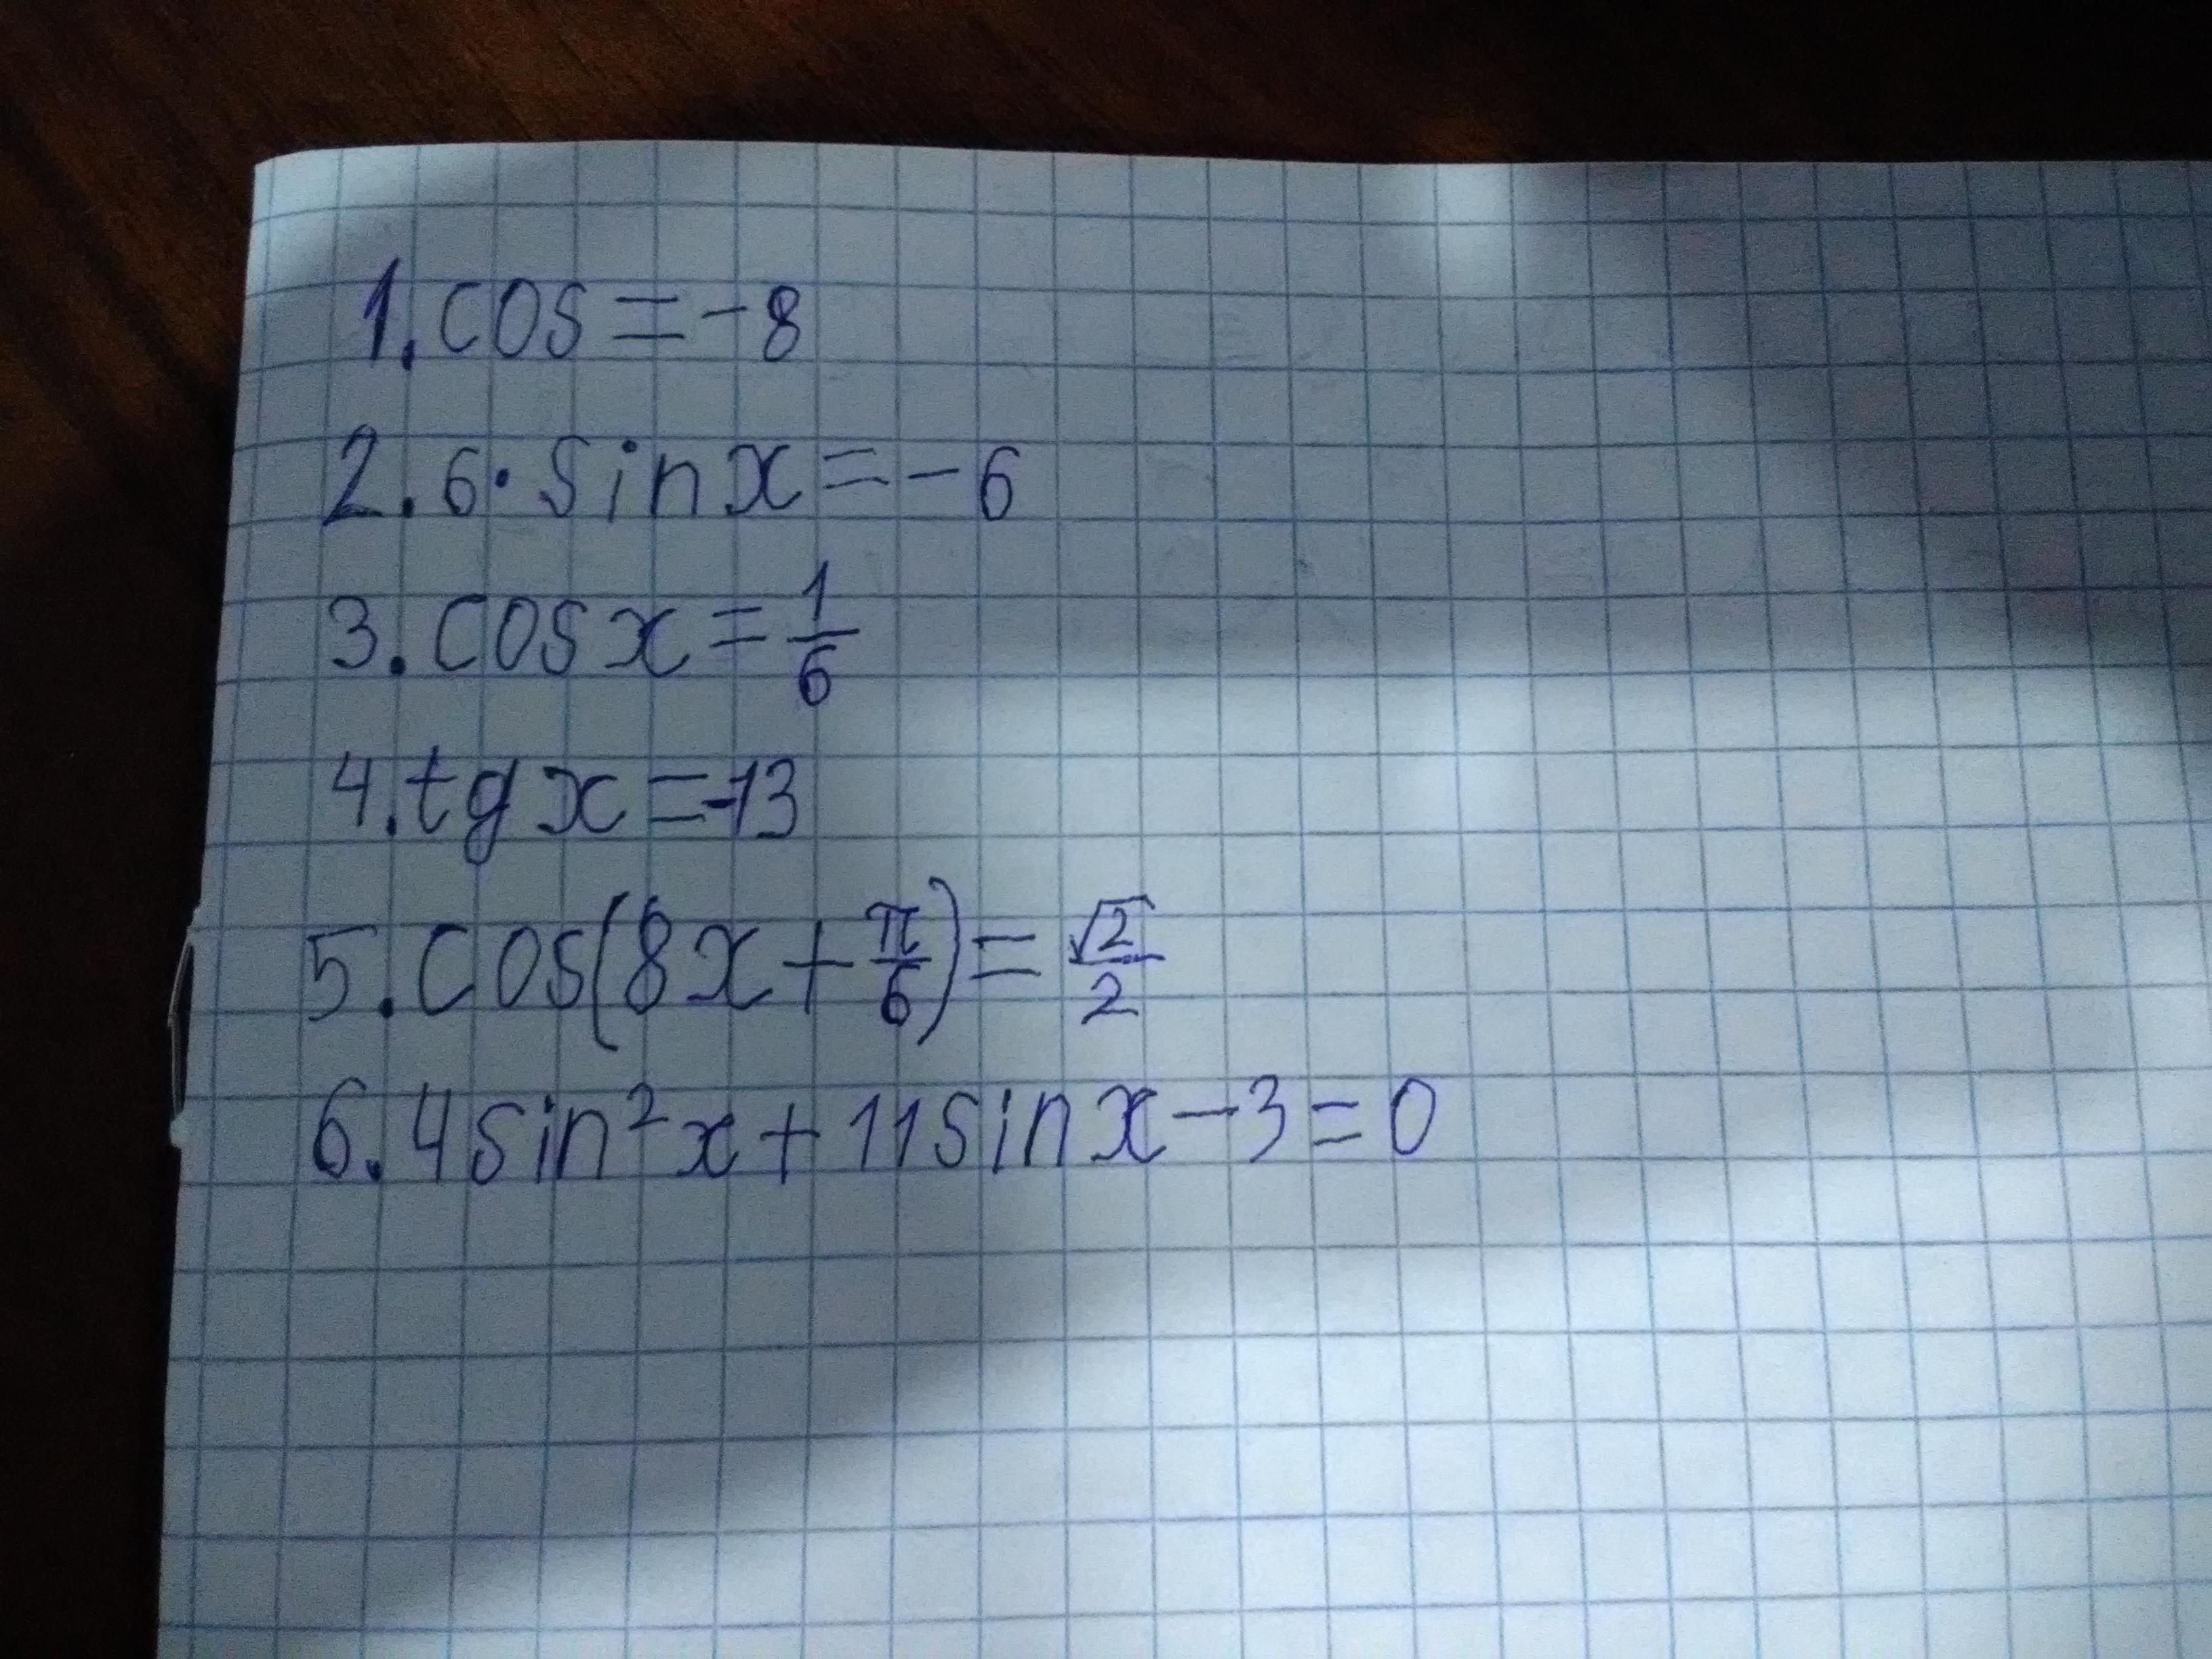 1. cos = -8
2. 6 · sin x = -6
3. cos x = 1/6
4. tg x = -13
5. cos(8x + π/6) = √2/2
6. 4sin²x + 11sin x - 3 = 0